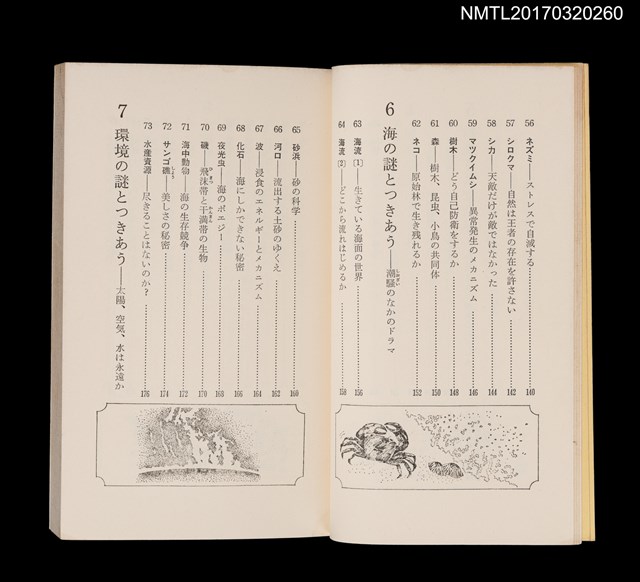 NMTL20170320260
56 ネズミ——ストレスで自滅する 140
57 シロクマ——自然は王者の存在を許さない 142
58 シカ——天敵だけが敵ではなかった 144
59 マツクイムシ——異常発生のメカニズム 146
60 樹木——どう自己防衛をするか 148
61 森——樹木、昆虫、小鳥の共同体 150
62 ネコ——原始林で生き残れるか 152
6 海の謎とつきあう——潮騒のなかのドラマ
63 海流〔1〕——生きている海面の世界 156
64 海流〔2〕——どこから流れはじめるか 158
65 砂浜——砂の科学 160
66 河口——流出する土砂のゆくえ 162
67 波——浸食のエネルギーとメカニズム 164
68 化石——海にしかできない秘密 166
69 夜光虫——海のポエジー 168
70 磯——飛沫帯と干満帯の生物 170
71 海中動物——海の生存競争 172
72 サンゴ礁——美しさの秘密 174
73 水産資源——尽きることはないのか? 176
7 環境の謎とつきあう——太陽、空気、水は永遠か